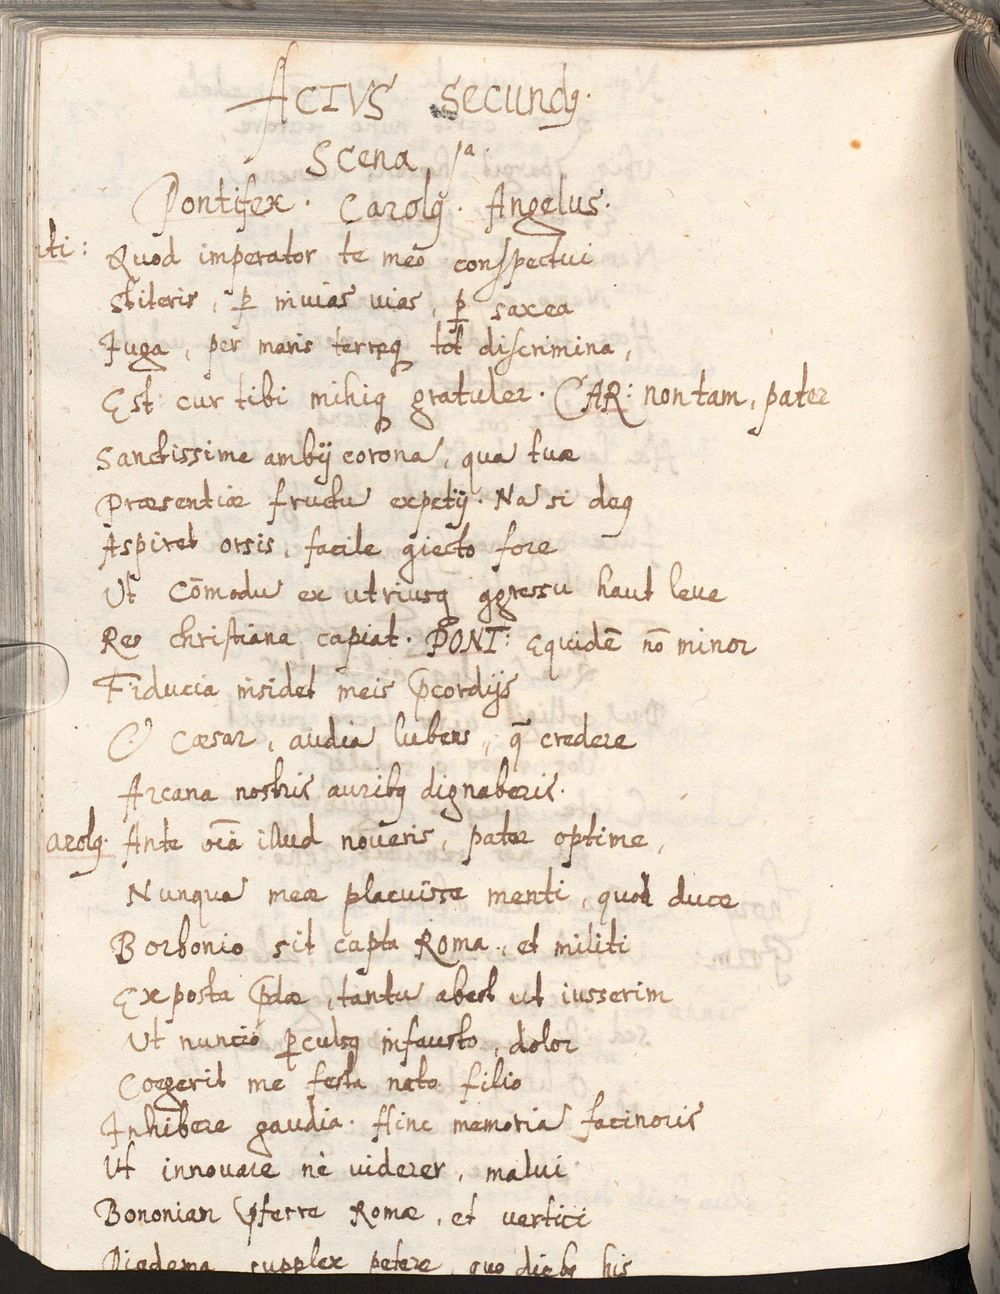 ACTVS Secundꝰ.
Scena 1ª.
Pontifex. Carolꝰ. Angelus.
ti: Quod imperator te meo conspectui
Stiteris, ꝑ inuias uias, ꝑ saxea
Juga, per maris terręq tot discrimina,
Est cur tibi mihiq gratuler. CAR: non tam, pater
Sanctissime ambij corona, qua tuæ
Præsentiæ fructu expetij. Na si deꝰ
Aspiret orsis, facile fore
Ut cōmodu ex utriusq ꝯgressu haut leue
Res christiana capiat. PONT: Equidē nō minor
Fiducia insidet meis p̄cordijs
O Cæsar, audia lubens, q̄ credere
Arcana nostris auribꝰ dignaberis.
arolꝰ. Ante oīa illud noueris, pater optime,
Nunqua meæ placuisse menti, quod duce
Borbonio sit capta Roma, et militi
Exposta p̄dæ, tantu abest ut iusserim
Ut nuncio ꝑculsꝰ infausto, dolor
Coegerit me festa nato filio
Inhibere gaudia. Hinc memoria facinoris
Ut innouare ne uiderer, malui
Bononian p̄ferre Romæ, et uertici
Diadema supplex petere, quo diebꝰ his